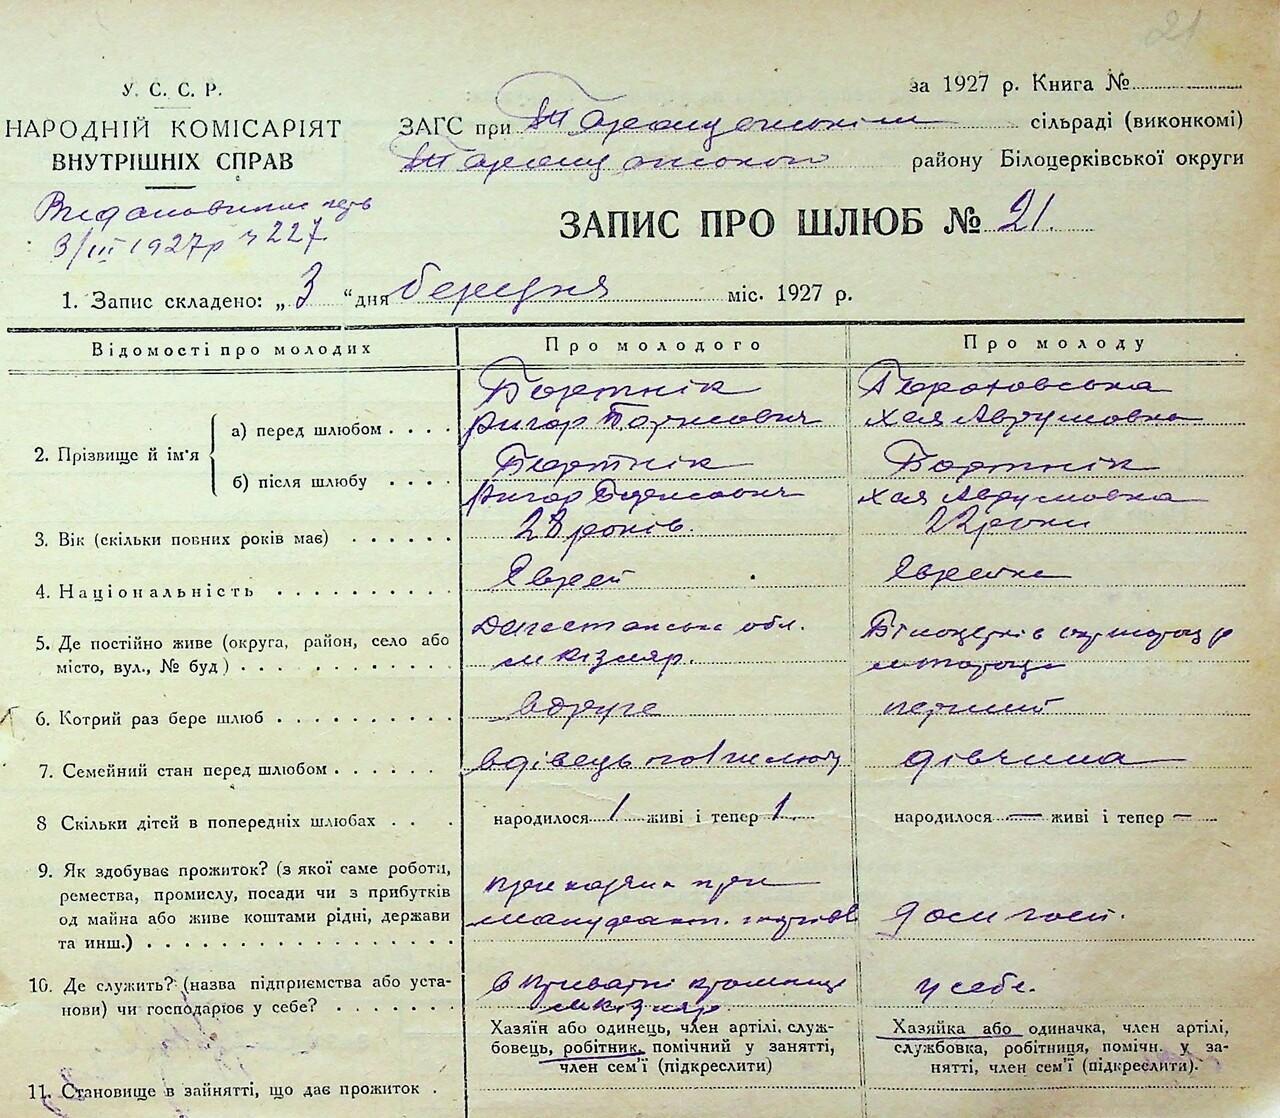 21
У. С. С. Р.
НАРОДНІЙ КОМІСАРІЯТ
ВНУТРІШНІХ СПРАВ
за 1927 р. Книга №
ЗАГС при Таращанськім сільраді (виконкомі)
Таращанського району Білоцерківської округи
3/III 1927р 227
ЗАПИС ПРО ШЛЮБ № 21.
1. Запис складено: „ 3 “ дня березня міс. 1927 р.
Відомості про молодих Про молодого Про молоду
2. Прізвище й ім'я
а) перед шлюбом . . . . Бортнік
Хая Аврумовна
б) після шлюбу . . . . Бортнік Бортнік
Хая Аврумовна
3. Вік (скільки повних років має) . . . . . . 28 років. 22 роки
4. Національність . . . . . . . . . . Єврей Єврейка
5. Де постійно живе (округа, район, село або Дагестанська обл.
місто, вул., № буд) . . . . . . . . . . м Кізляр.
6. Котрий раз бере шлюб . . . . . . . . . . вдруге перший
7. Семейний стан перед шлюбом . . . . . . вдівець по 1 шлюбу дівчина
8 Скільки дітей в попередніх шлюбах . . . народилося 1 живі і тепер 1 народилося — живі і тепер —
9. Як здобуває прожиток? (з якої саме роботи,
ремества, промислу, посади чи з прибутків прикащик при
од майна або живе коштами рідні, держави мануфакт. Дом госп.
та инш.) . . . . . . . . . . . . . . . . .
10. Де служить? (назва підприємства або уста- в приватні у себе.
нови) чи господарює у себе? . . . . . . . м Кізляр
Хазяїн або одинець, член артілі, служ- Хазяйка або одиначка, член артілі,
бовець, робітник, помічний у занятті, службовка, робітниця, помічн. у за-
член сем'ї (підкреслити) нятті, член сем'ї (підкреслити).
11. Становище в зайнятті, що дає прожиток .